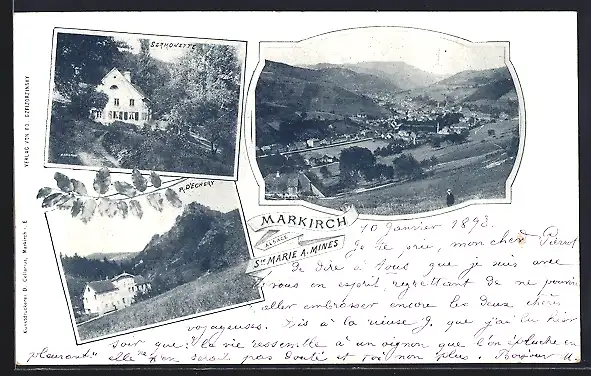 SERHOUETTE
R. D'ECHERY
VERLAG VON ED.
Kunstdruckerei D. Cellarius, Markirch i. E
MARKIRCH
ALSACE
STE MARIE A. MINES
10 Janvier 189
Je te prie, mon cher Pierrot
de dire à tous que je suis avec
vous en esprit, regrettant de ne pouvoir
aller embrasser encore les deux chères
voyageuses. Dis à la que j'ai lu hier
soir que: "la vie ressemble à un oignon que l'on épluche en
pleurant." elle n'en serait pas douté et toi non plus. Bonjour